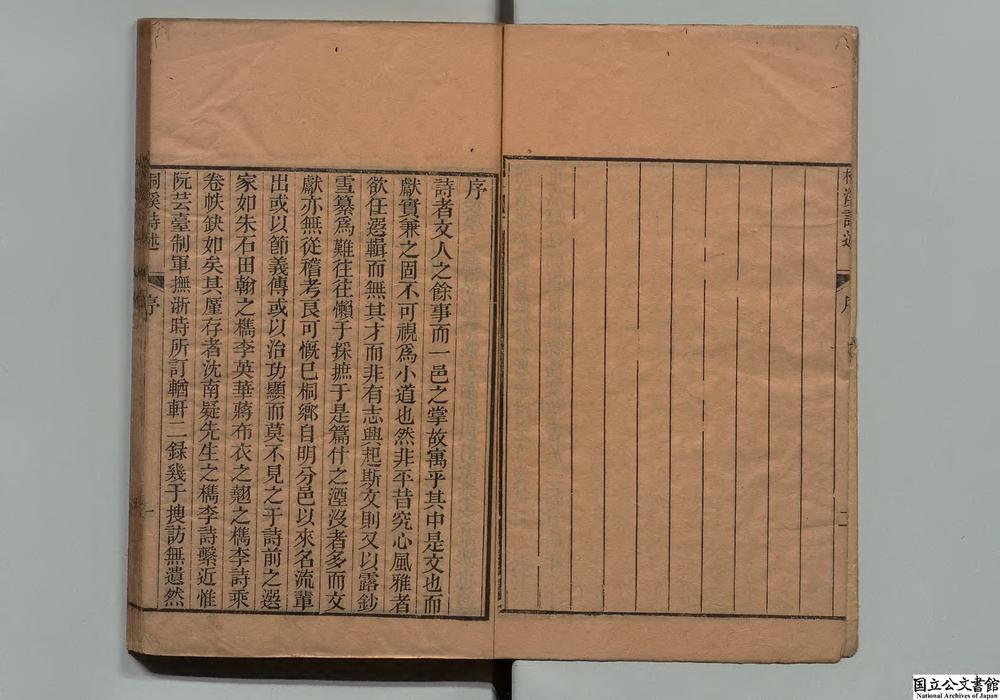 序
詩者文人之餘事而一邑之掌故寓乎其中是文也而
獻實兼之固不可視爲小道也然非平昔究心風雅者
欲任選輯而無其才而非有志興起斯文則又以露鈔
雪纂爲難往往懶于採摭于是篇什之湮沒者多而文
獻亦無從稽考良可慨已桐鄉自明分邑以來名流輩
出或以節義傳或以治功顯而莫不見之于詩前之選
家如朱石田翰之檇李英華蔣布衣之翹之檇李詩乘
卷帙缺如矣其厪存者沈南疑先生之檇李詩繫近惟
阮芸臺制軍撫浙時所訂輶軒二録幾于搜訪無遺然
桐溪詩述
序
一
國立公文書館
National Archives of Japan